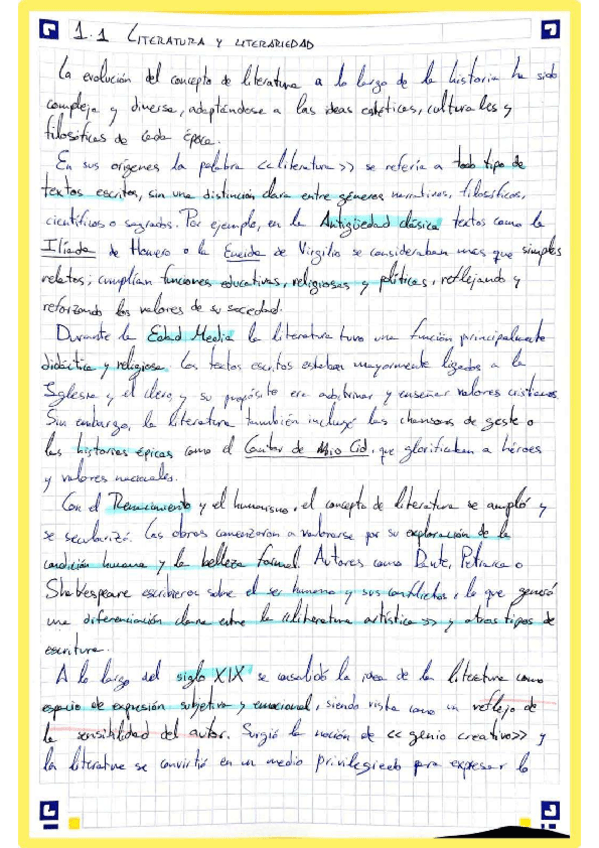 1.1 LITERATURA Y LITERARIEDAD
La evolución del concepto de literatura a lo largo de la historia ha sido
compleja y diversa, adaptándose a las ideas estéticas, culturales y
filosóficas de cada época.
En sus orígenes la palabra <<literatura>> se refería a todo tipo de
textos escritos, sin una distinción clara entre géneros narrativos, filosóficos,
científicos o sagrados. Por ejemplo, en la Antigüedad clásica textos como la
Ilíada de Homero o la Eneida de Virgilio se consideraban más que simples
relatos; cumplían funciones educativas, religiosas y políticas, reflejando y
reforzando los valores de su sociedad.
Durante la Edad Media la literatura tuvo una función principalmente
didáctica y religiosa. Los textos escritos estaban mayormente ligados a la
Iglesia y el clero, y su propósito era adoctrinar y enseñar valores cristianos.
Sin embargo, la literatura también incluyó las chansons de geste o
las historias épicas como el Cantar de Mio Cid, que glorificaban a héroes
y valores nacionales.
Con el Renacimiento y el humanismo, el concepto de literatura se amplió y
se secularizó. Las obras comenzaron a valorarse por su exploración de la
condición humana y la belleza formal. Autores como Dante, Petrarca o
Shakespeare escribieron sobre el ser humano y sus conflictos, lo que generó
una diferenciación clara entre la <<literatura artística>> y otros tipos de
escritura.
A lo largo del siglo XIX se consolidó la idea de la literatura como
espacio de expresión subjetiva y emocional, siendo vista como un reflejo de
la sensibilidad del autor. Surgió la noción de <<genio creativo>> y
la literatura se convirtió en un medio privilegiado para expresar lo